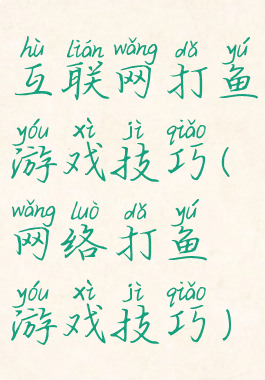 hù lián wǎng dǎ yú
互联网打鱼
yóu xì jì qiǎo
游戏技巧(
wǎng luò dǎ yú
网络打鱼
yóu xì jì qiǎo
游戏技巧)